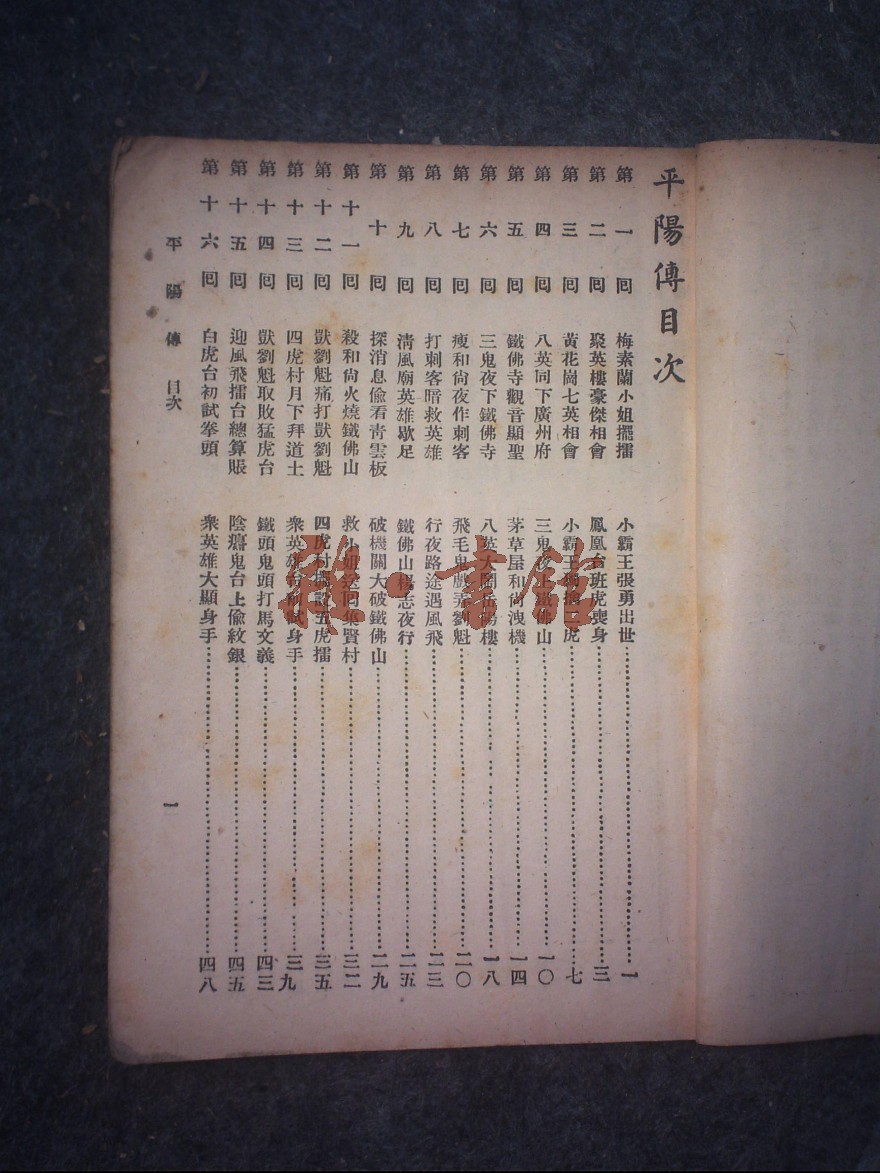 平陽傳目次
第一回 梅素蘭小姐擺擂 小霸王張勇出世 一
第二回 聚英樓豪傑相會 鳳凰台班虎喪身 三
第三回 黃花崗七英相會 小霸王 虎 七
第四回 八英同下廣州府 三鬼夜 鐵佛山 一〇
第五回 鐵佛寺觀音顯聖 茅草屋和尚洩機 一四
第六回 三鬼夜下鐵佛寺 八英大鬧岳陽樓 一八
第七回 瘦和尚夜作刺客 飛毛鬼戲弄劉魁 二〇
第八回 打刺客暗救英雄 行夜路途遇風飛 二三
第九回 淸風廟英雄歇足 鐵佛山楊志夜行 二五
第十回 探消息偸看靑雲板 破機關大破鐵佛山 二九
第十一回 殺和尙火燒鐵佛山 救小姐送回集賢村 三二
第十二回 獃劉魁痛打獃劉魁 四虎村 設五虎擂 三五
第十三回 四虎村月下拜道士 衆英雄台前試身手 三九
第十四回 獃劉魁取敗猛虎台 鐵頭鬼頭打馬文義 四三
第十五回 迎風飛擂台總算賬 陰癆鬼台上偸紋銀 四五
第十六回 白虎台初試拳頭 衆英雄大顯身手 四八
平陽傳 目次
一
雅·書館